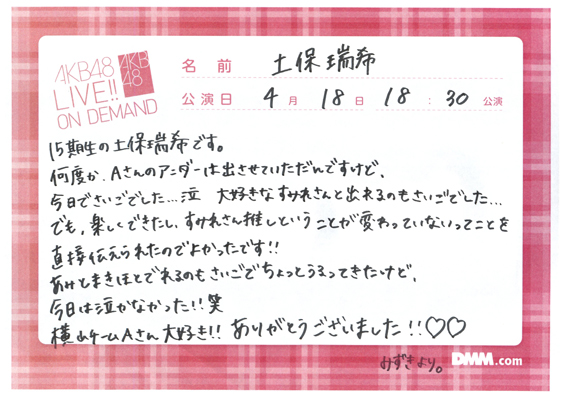 AKB48
LIVE!!
ON DEMAND
AKB
48
名 前 土保瑞希
公演日 4 月 18 日 18 : 30 公演
15期生の土保瑞希です。
何度か、Aさんのアンダーは出させていただんですけど、
今日でさいごでした…泣 大好きなすみれさんと出れるのもさいごでした…
でも、楽しくできたし、すみれさん推しということが変わっていないってことを
直接伝えられたのでよかったです!!
あみとまきほとでれるのもさいごでちょっとうるってきたけど、
今日は泣かなかった!!笑
横山チームAさん大好き!! ありがとうございました!!♡♡
みずきより。
DMM.com